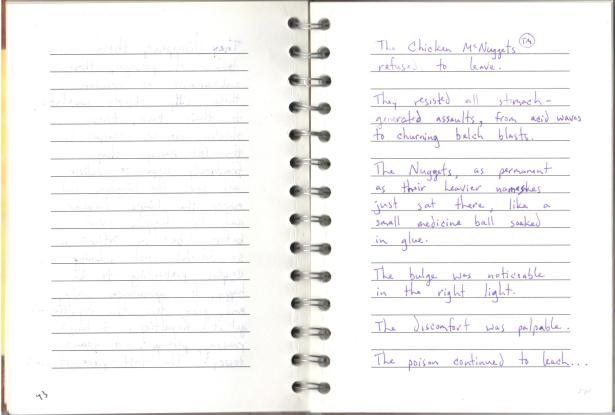 43
The Chicken McNuggets TM
refused to leave.
They resisted all stomach-
generated assaults, from acid waves
to churning belch blasts.
The Nuggets, as permanent
as their heavier namesakes
just sat there, like a
small medicine ball soaked
in glue.
The bulge was noticeable
in the right light.
The discomfort was palpable.
The poison continued to leach...